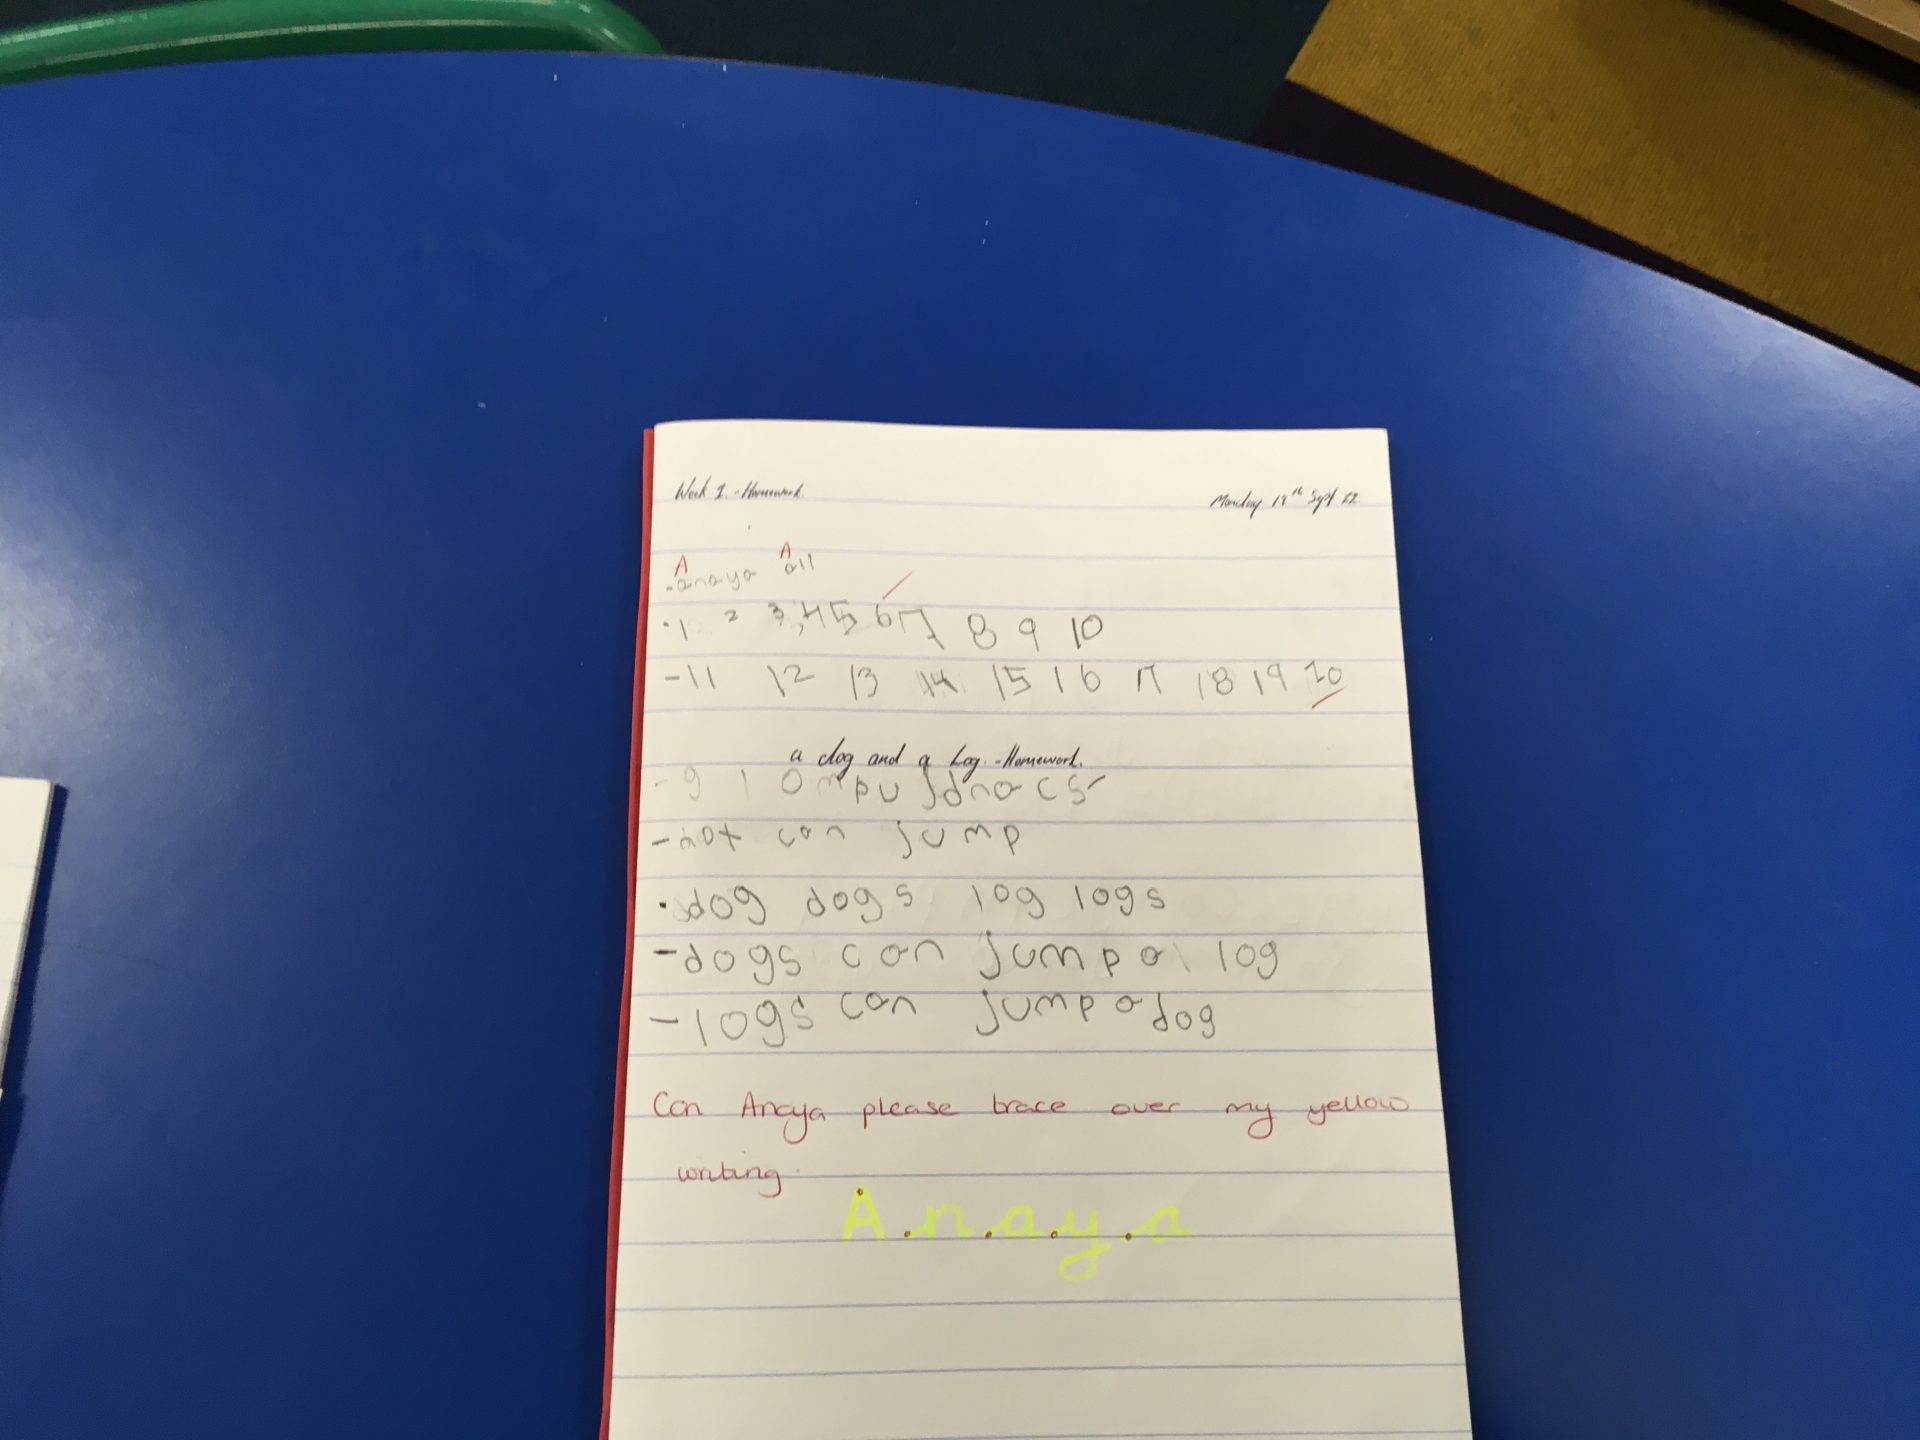 Week 1. - Homework.
Monday 19th Sept 22
A A
-anaya all
·1 2 3 4 5 6 7 8 9 10
-11 12 13 14 15 16 17 18 19 20
a dog and a Log. - Homework.
-g l o m p u j d n a c s
-not can jump
·dog dogs log logs
-dogs can jump a log
-logs can jump a dog
Can Anaya please trace over my yellow
writing.
A.n.a.y.a